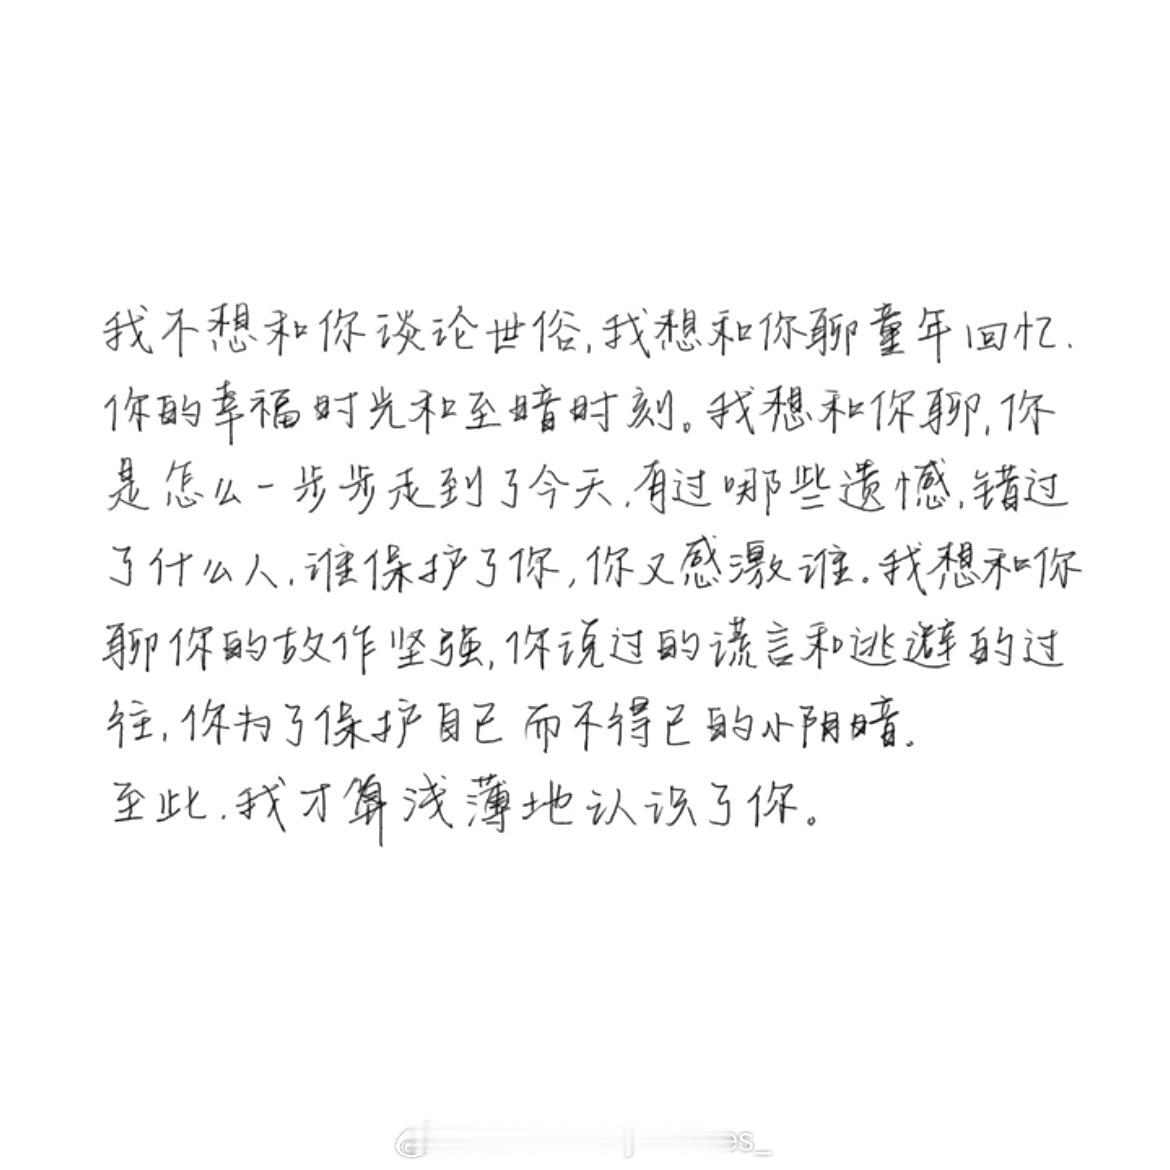 我不想和你谈论世俗,我想和你聊童年回忆.
你的幸福时光和至暗时刻。我想和你聊,你
是怎么一步步走到了今天.有过哪些遗憾.错过
了什么人.谁保护了你,你又感激谁.我想和你
聊你的故作坚强,你说过的谎言和逃避的过
往,你为了保护自己而不得已的小阴暗.
至此.我才算浅薄地认识了你。